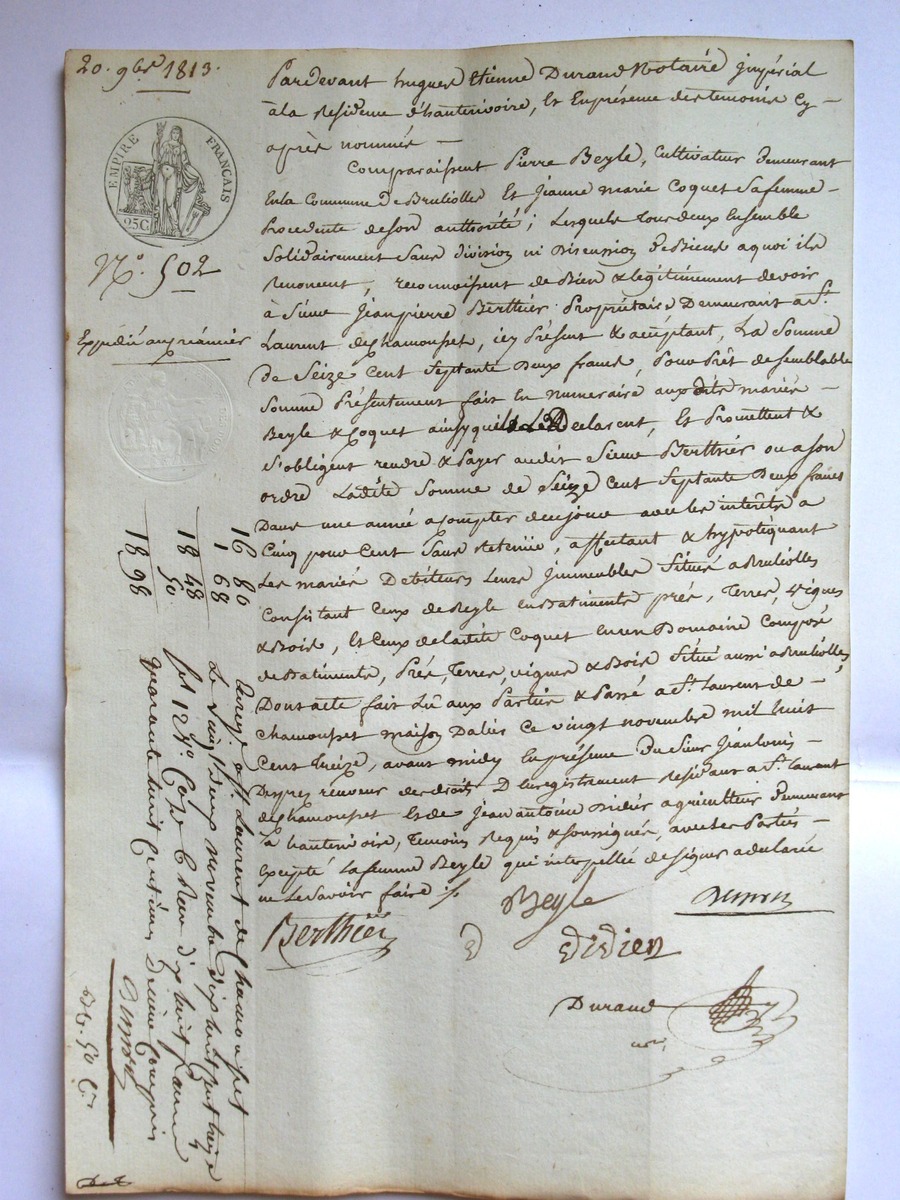 20. 9bre 1813.
EMPIRE FRANÇAIS
25C.
N.o 502
Expédié au créancier
Pardevant hugues Etienne Durand Notaire impérial
à la Residence d'hauterivoire, Et En présence des temoins Cy-
après nommés —
Comparaissent Pierre Beyle, Cultivateur Demeurant
En la Commune de Brulliolles Et Jeanne marie Coquet Sa femme
Procedente de Son authorité; Lesquels Tous deux Ensemble
Solidairement Sans division ni Discussion de Biens a quoi ils
Renoncent, reconnoissent de Bien & legitimement devoir
à Sieur Jean pierre Berthier Propriétaire Demeurant a St.
Laurent de Chamousset, icy Présent & acceptant, La Somme
De Seize Cent Septante Deux francs, Pour Prêt de semblable
Somme Présentement fait En Numeraire aux dits mariés
Beyle & Coquet ainsy qu'ils Le Declarent, Et Promettent &
S'obligent rendre & Payer audit Sieur Berthier ou a Son
ordre Ladite Somme de Seize Cent Septante Deux francs
Dans une année a compter de ce jour avec les interêts a
Cinq pour Cent Sans Retenue, affectant & hypotéquant
Les mariés Debiteurs Leurs Immeubles Situés a Brulliolles
Consistant Ceux de Beyle En Batiments prés, Terres, Vignes
& Bois, Et Ceux de ladite Coquet En un Domaine Composé
de Batiments, Prés, Terres, vignes & Bois Situé aussi a Brulliolles,
Dont acte fait Lû aux Parties & Passé a St. Laurent de
Chamousset maison Dalés Ce vingt novembre mil huit
Cent treize, avant midy En présence du Sieur Jean Louis
receveur des droits D'Enregistrement Residant a St. Laurent
de Chamousset Et de Jean antoine Didier agriculteur Demeurant
a hauterivoire, Temoins Requis & Soussignés, avec les Parties
Excepté La femme Beyle qui interpellée de signer a declaré
ne Le Savoir faire
Beyle
Berthier
Didier
Durand
16 80
1 68
18 48
50
18 98
Enreg. a St. Laurent de Chamousset
Le vingt deux novembre dix huit cent treize
Reçu dix huit francs
quarante huit Centimes Dixieme Compris
50 C.